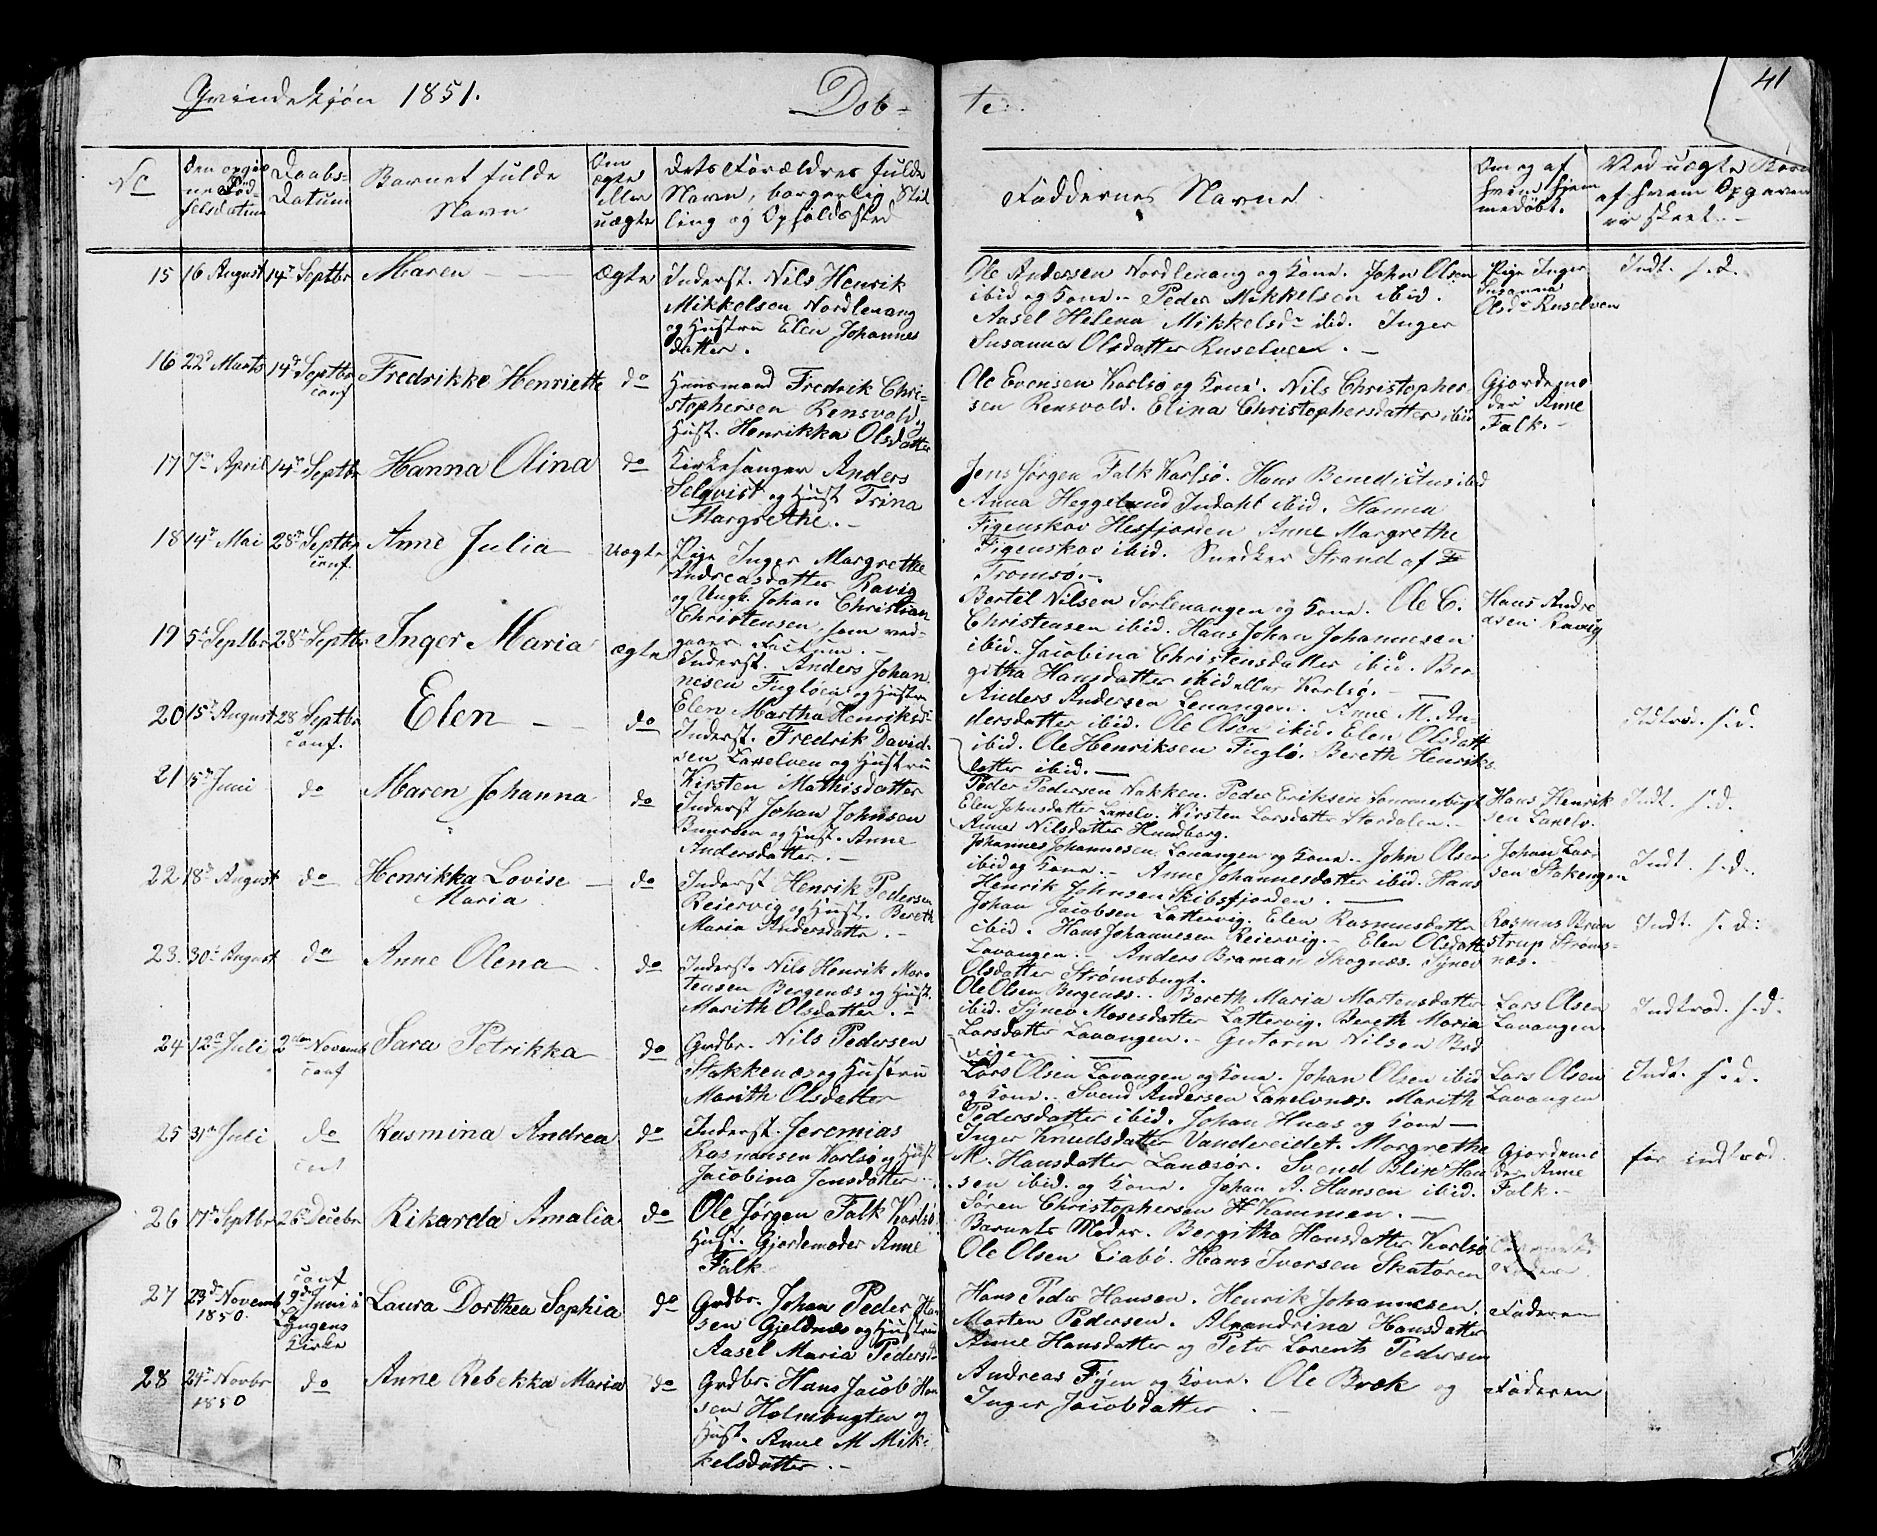 Qvindekjøn 1851. Døb-
te.
41
No
Den opgiv
ne Fød-
selsdatum
Daabs-
Datum
Barnets fulde
Navn
Om
ægte
eller
uægte
Dets Forældres fulde
Navn, borgerlig Stil
ling og Opholdssted
Faddernes Navne
Om og af
hvem hjem
medøbt.
Ved uægte Børn
af hvem Opgaven
er skeet.
15 16 August 14de Septbr Maren Ægte
Inderst. Nils Henrik
Mikkelsen Nordlenang
og Hustru Elen Johannes
datter.
Ole Andersen Nordlenang og Kone. John Olsen
ibid og Kone. Peder Mikkelsen ibid.
Aasel Helena Mikkelsdr ibid. Inger
Susanna Olsdatter Russelven.
Pige Inger
Susanna
Olsdr Russelven
Indt. s.d.
16 22d Marts 14d Septbr
conf
Fredrikke Henriette do
Huusmand Fredrik Chri-
stophersen Rensvold og
Hust. Henrikka Olsdatter
Ole Evensen Karlsø og Kone. Nils Christopher-
sen Rensvold. Elina Christophersdatter ibid
Gjordemo
der Anne
Falk.
17 7de April 14de Septbr Hanna Olina do
Kirkesanger Anders
Selqvist og Hust Trina
Margrethe.
Jens Jørgen Falk Karlsø. Hans Benedictus ibid
Anna Heggelund Indahl ibid. Hanna
Figenskov Hessfjorden Anne Margrethe
Figenskov ibid. Snedker Strand af
Tromsø.
18 14de Mai 28de Septbr
conf.
Anne Julia Uægte
Pige Inger Margrethe
Andreasdatter Ravig
og Ungk. Johan Christian
Christensen, som ved-
gaaer Factum.
Bertel Nilsen Sørlenangen og Kone. Ole C.
Christensen ibid. Hans Johan Johannesen
ibid. Jacobina Christensdatter ibid. Ber
githa Hansdatter ibid eller Karlsø.
Hans Andre
asen Ravig
19 5te Septbr 28de Septbr Inger Maria ægte
Inderst. Anders Johan
nesen Fugløen og Hustru
Elen Martha Henriksdr
Anders Andersen Lenangen. Anne M. An-
dersdatter ibid. Ole Olsen ibid. Elen Olsdatt
ibid. Ole Henriksen Fuglø. Bereth Henriks
datter ibid.
Indtrod. s.d.
20 15de August 28 Septbr
conf.
Elen do
Inderst. Fredrik David-
sen Lakselven og Hustru
Kirsten Mathisdatter
Peder Pedersen Nakken. Peder Eriksen Sommerbugt
Elen Johnsdatter Lakselv. Kirsten Larsdatter Stordalen.
Anne Nilsdatter Hundberg.
Hans Henrik
sen Lakselv.
Indt. s.d.
21 5te Juni do Maren Johanna do
Inderst Johan Johnsen
og Hust. Anne
Andersdatter.
Johannes Johannesen Lavangen og Kone. John Olsen
ibid og Kone. Anne Johannesdatter ibid. Hans
Henrik Johnsen Skibsfjorden.
Johan Lar-
sen Stakengen
Indt. s.d.
22 18de August do Henrikka Lovise
Maria
do
Inderst Henrik Pedersen
Reiervig og Hust. Bereth
Maria Andersdatter.
Johan Jacobsen Lattervig. Elen Rasmusdatter
ibid. Hans Johannesen Reiervig. Elen Olsdatt
Lavangen. Anders Braman Skognæs. Synev
Olsdatter Strømsbugt.
Rasmus Brun
strup Strøms-
næs.
Indt. s.d.
23. 30te August do Anne Olena do
Inderst. Nils Henrik Mor-
tensen Bergenæs og Hust.
Marith Olsdatter.
Ole Olsen Bergenæs. Bereth Maria Mortensdatter
ibid. Synev Mosesdatter Lattervig. Bereth Maria
Larsdatter Lavangen. Gutorm Nilsen Bred
vigen
Lars Olsen
Lavangen.
Indtrod. s.d.
24 12te Juli 2den Novemb
conf
Sara Petrikka do
Grdbr. Nils Pedersen
Stakkenæs og Hustru
Marith Olsdatter
Lars Olsen Lavangen og Kone. Johan Olsen ibid
og Kone. Svend Andersen Lakselvnæs. Marith
Pedersdatter ibid. Johan Haas og Kone
Lars Olsen
Lavangen
Indt. s.d.
25 31te Juli do
conf
Rasmina Andrea do
Inderst. Jeremias
Rasmussen Karlsø og Hust
Jacobina Jensdatter
Inger Knudsdatter Vandereidet. Margrethe
M. Hansdatter Lanesør. Svend Blix Han
sen ibid. og Kone. Johan A. Hansen ibid.
Søren Christophersen Kammen.
Gjordemo
der Anne
Falk.
før indtrod.
26 17de Septbr 26de Decebr Rikarda Amalia do
Ole Jørgen Falk Karlsø
Hust. Gjordemoder Anne
Falk
Barnets Moder. Bergitha Hansdatter Karlsø
Ole Olsen Liabø. Hans Iversen Skatøren
Barnets
Fader
27 23d Novemb
1850.
conf
9de Juni i
Lyngens
Kirke
Laura Dorthea Sophia do
Grdbr. Johan Peder Han
sen Gjeldnæs og Hustru
Aasel Maria Pedersdr
Hans Peder Hansen. Henrik Johannesen.
Morten Pedersen. Alexandrina Hansdatter
Anne Hansdatter og Peter Lorents Pedersen
Faderen
28 24de Novbr
1850
do Anne Rebekka Maria do
Grdbr. Hans Jacob Han
sen Holmbugten og
Hust. Anne M Mik-
kelsdatter.
Andreas Fyen og Kone. Ole Bræk og
Inger Jacobdatter
Faderen